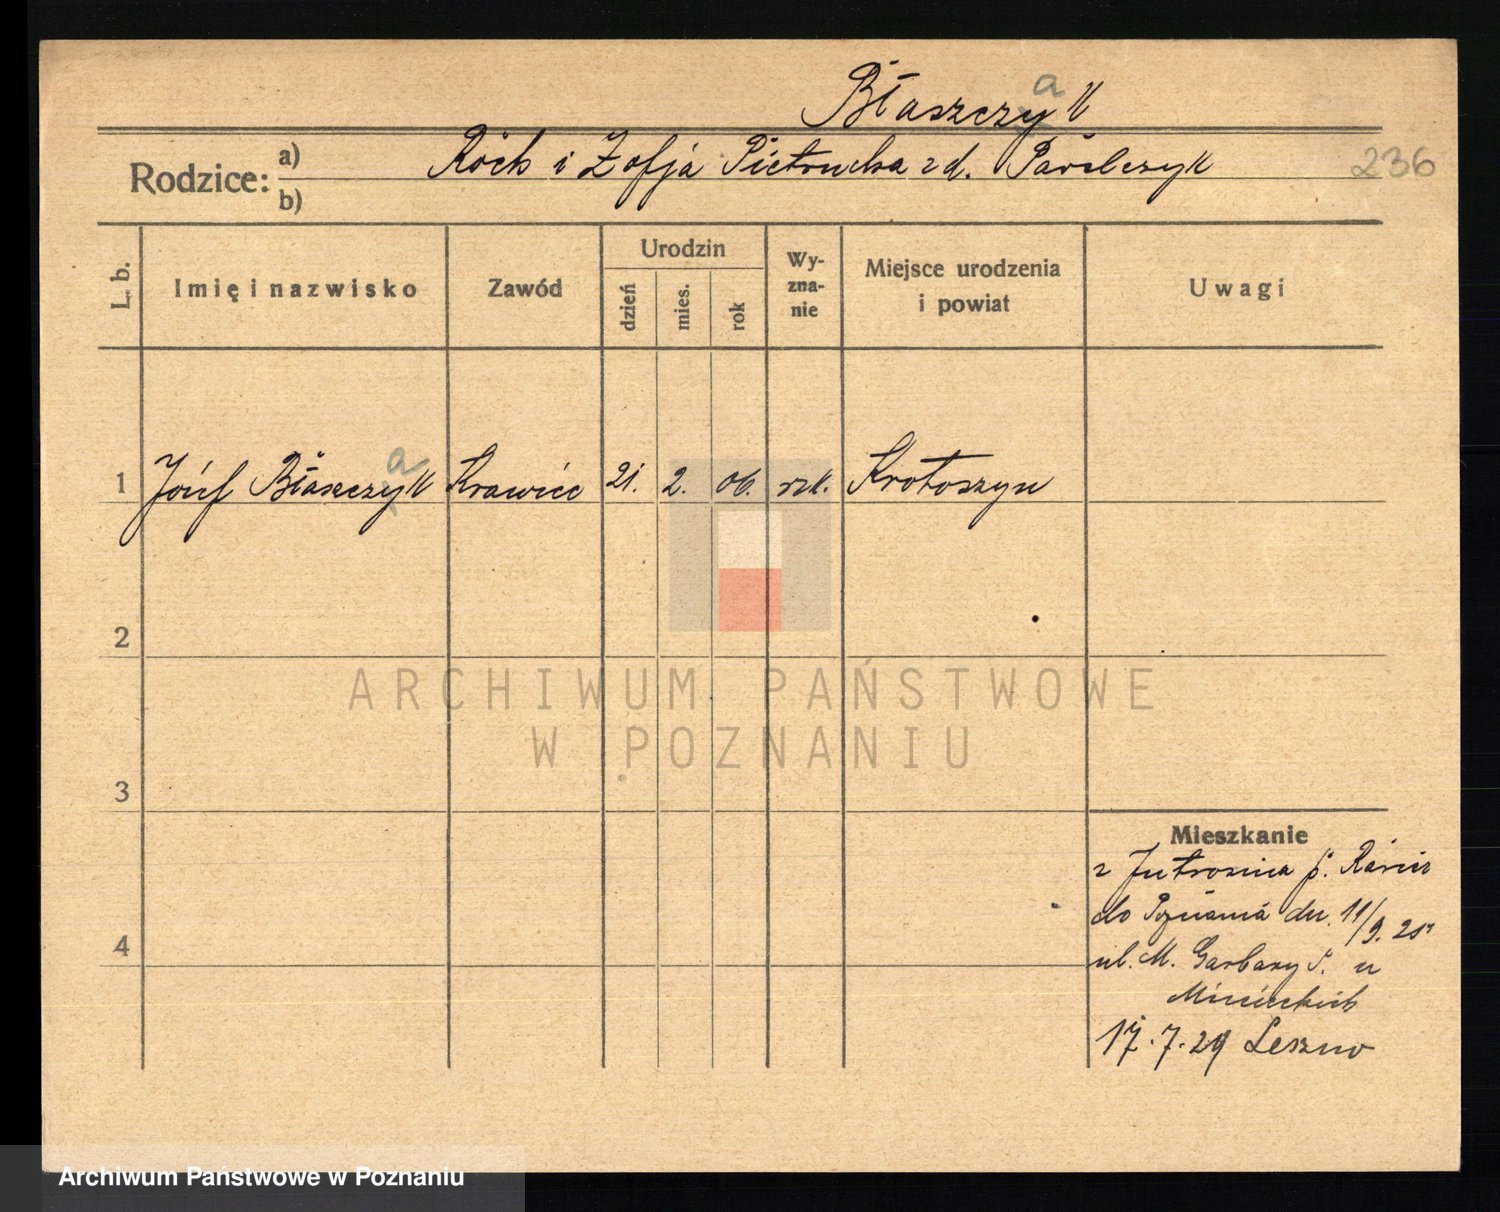 Błaszczyk
a
Rodzice: a) Roch i Zofja Pietrucha zd. Pawelczyk
b)
236
L. b.
Imię i nazwisko
Zawód
Urodzin
dzień
mies.
rok
Wy-
zna-
nie
Miejsce urodzenia
i powiat
Uwagi
a
1 Józef Błaszczyk Krawiec 21. 2. 06. rzk. Krotoszyn
2
3
4
ARCHIWUM PAŃSTWOWE
W POZNANIU
Mieszkanie
z Jutrosina p. Rawicz
do Poznania dn. 11/9. 28
ul. M. Garbary 5. u
17.7.29 Leszno
Archiwum Państwowe w Poznaniu